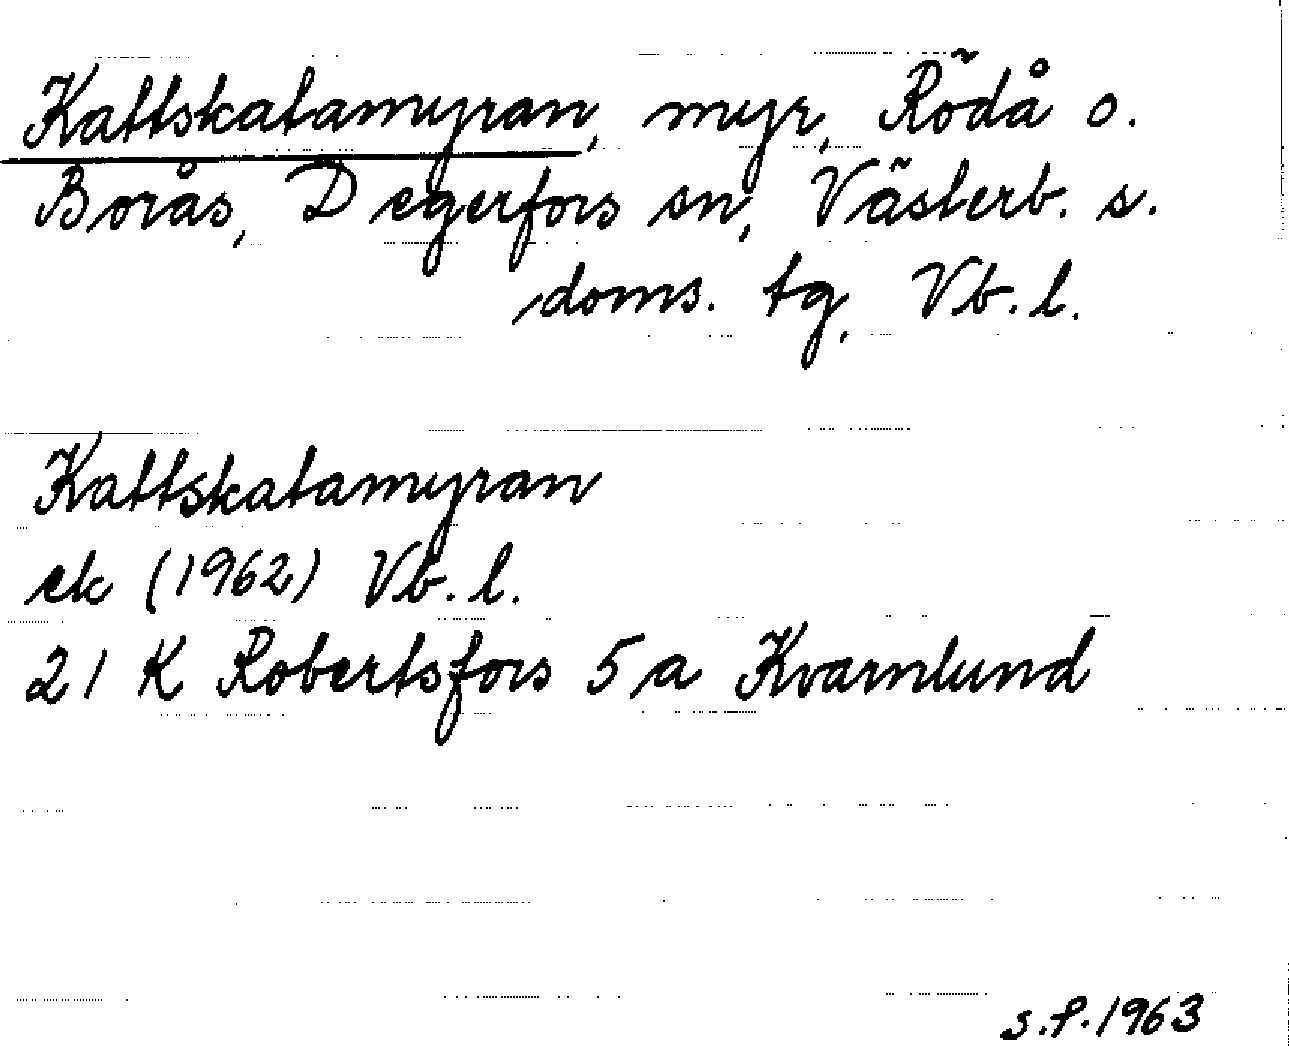 Kattskatamyran, myr, Rödå o.
Borås, Degerfors sn, Västerb. s.
doms. tg, Vb. l.
Kattskatamyran
ek (1962) Vb. l.
21 K Robertsfors 5 a Kvarnlund
s.f. 1963